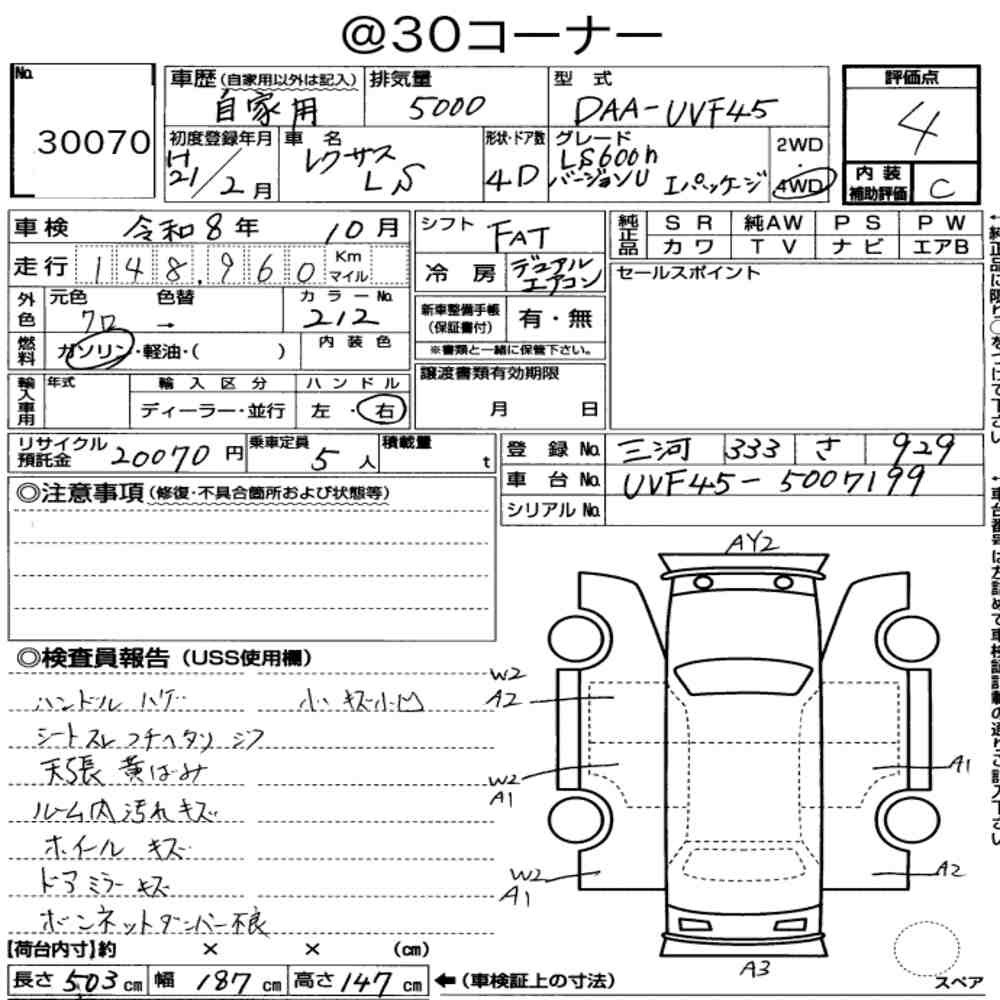 @30コーナー
No. 30070
車歴(自家用以外は記入) 自家用
排気量 5000
型式 DAA-UVF45
評価点 4
初度登録年月 H21/2月
車名 レクサス LS
形状・ドア数 4D
グレード LS600h バージョンU Iパッケージ
2WD・4WD
内装補助評価 C
車検 令和8年 10月
走行 148,960 Km マイル
外色 元色 クロ 色替 →
カラーNo. 212
燃料 ガソリン・軽油・( )
内装色
輸入車用 年式
輸入区分 ディーラー・並行
ハンドル 左・右
シフト FAT
冷房 デュアルエアコン
新車整備手帳(保証書付) 有・無
※書類と一緒に保管下さい。
譲渡書類有効期限 月 日
純正品 SR 純AW PS PW
カワ TV ナビ エアB
セールスポイント
←純正品に限り○をつけて下さい
リサイクル預託金 20070円
乗車定員 5人
積載量 t
登録No. 三河 333 さ 929
車台No. UVF45-5007199
シリアルNo.
←車台番号は左詰めで車検証記載の通りご記入下さい
◎注意事項(修復・不具合箇所および状態等)
◎検査員報告(USS使用欄)
ハンドル ハゲ 小キズ小凹
シートスレ フチヘタリ シワ
天張 黄ばみ
ルーム内汚れキズ
ホイール キズ
ドアミラーキズ
ボンネットダンパー不良
AY2
W2
A2
W2
A1
A1
W2
A1
A2
A3
スペア
【荷台内寸】約 × × (cm)
長さ503cm 幅187cm 高さ147cm ←(車検証上の寸法)